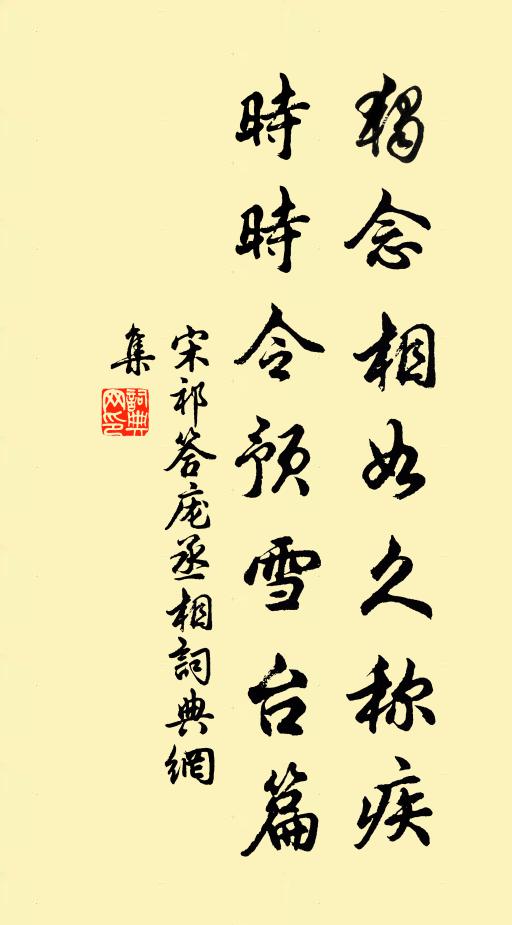 獨念相如久称疾
時時令預雪台篇
宋祁答庞丞相詞典網
集
詞典网印